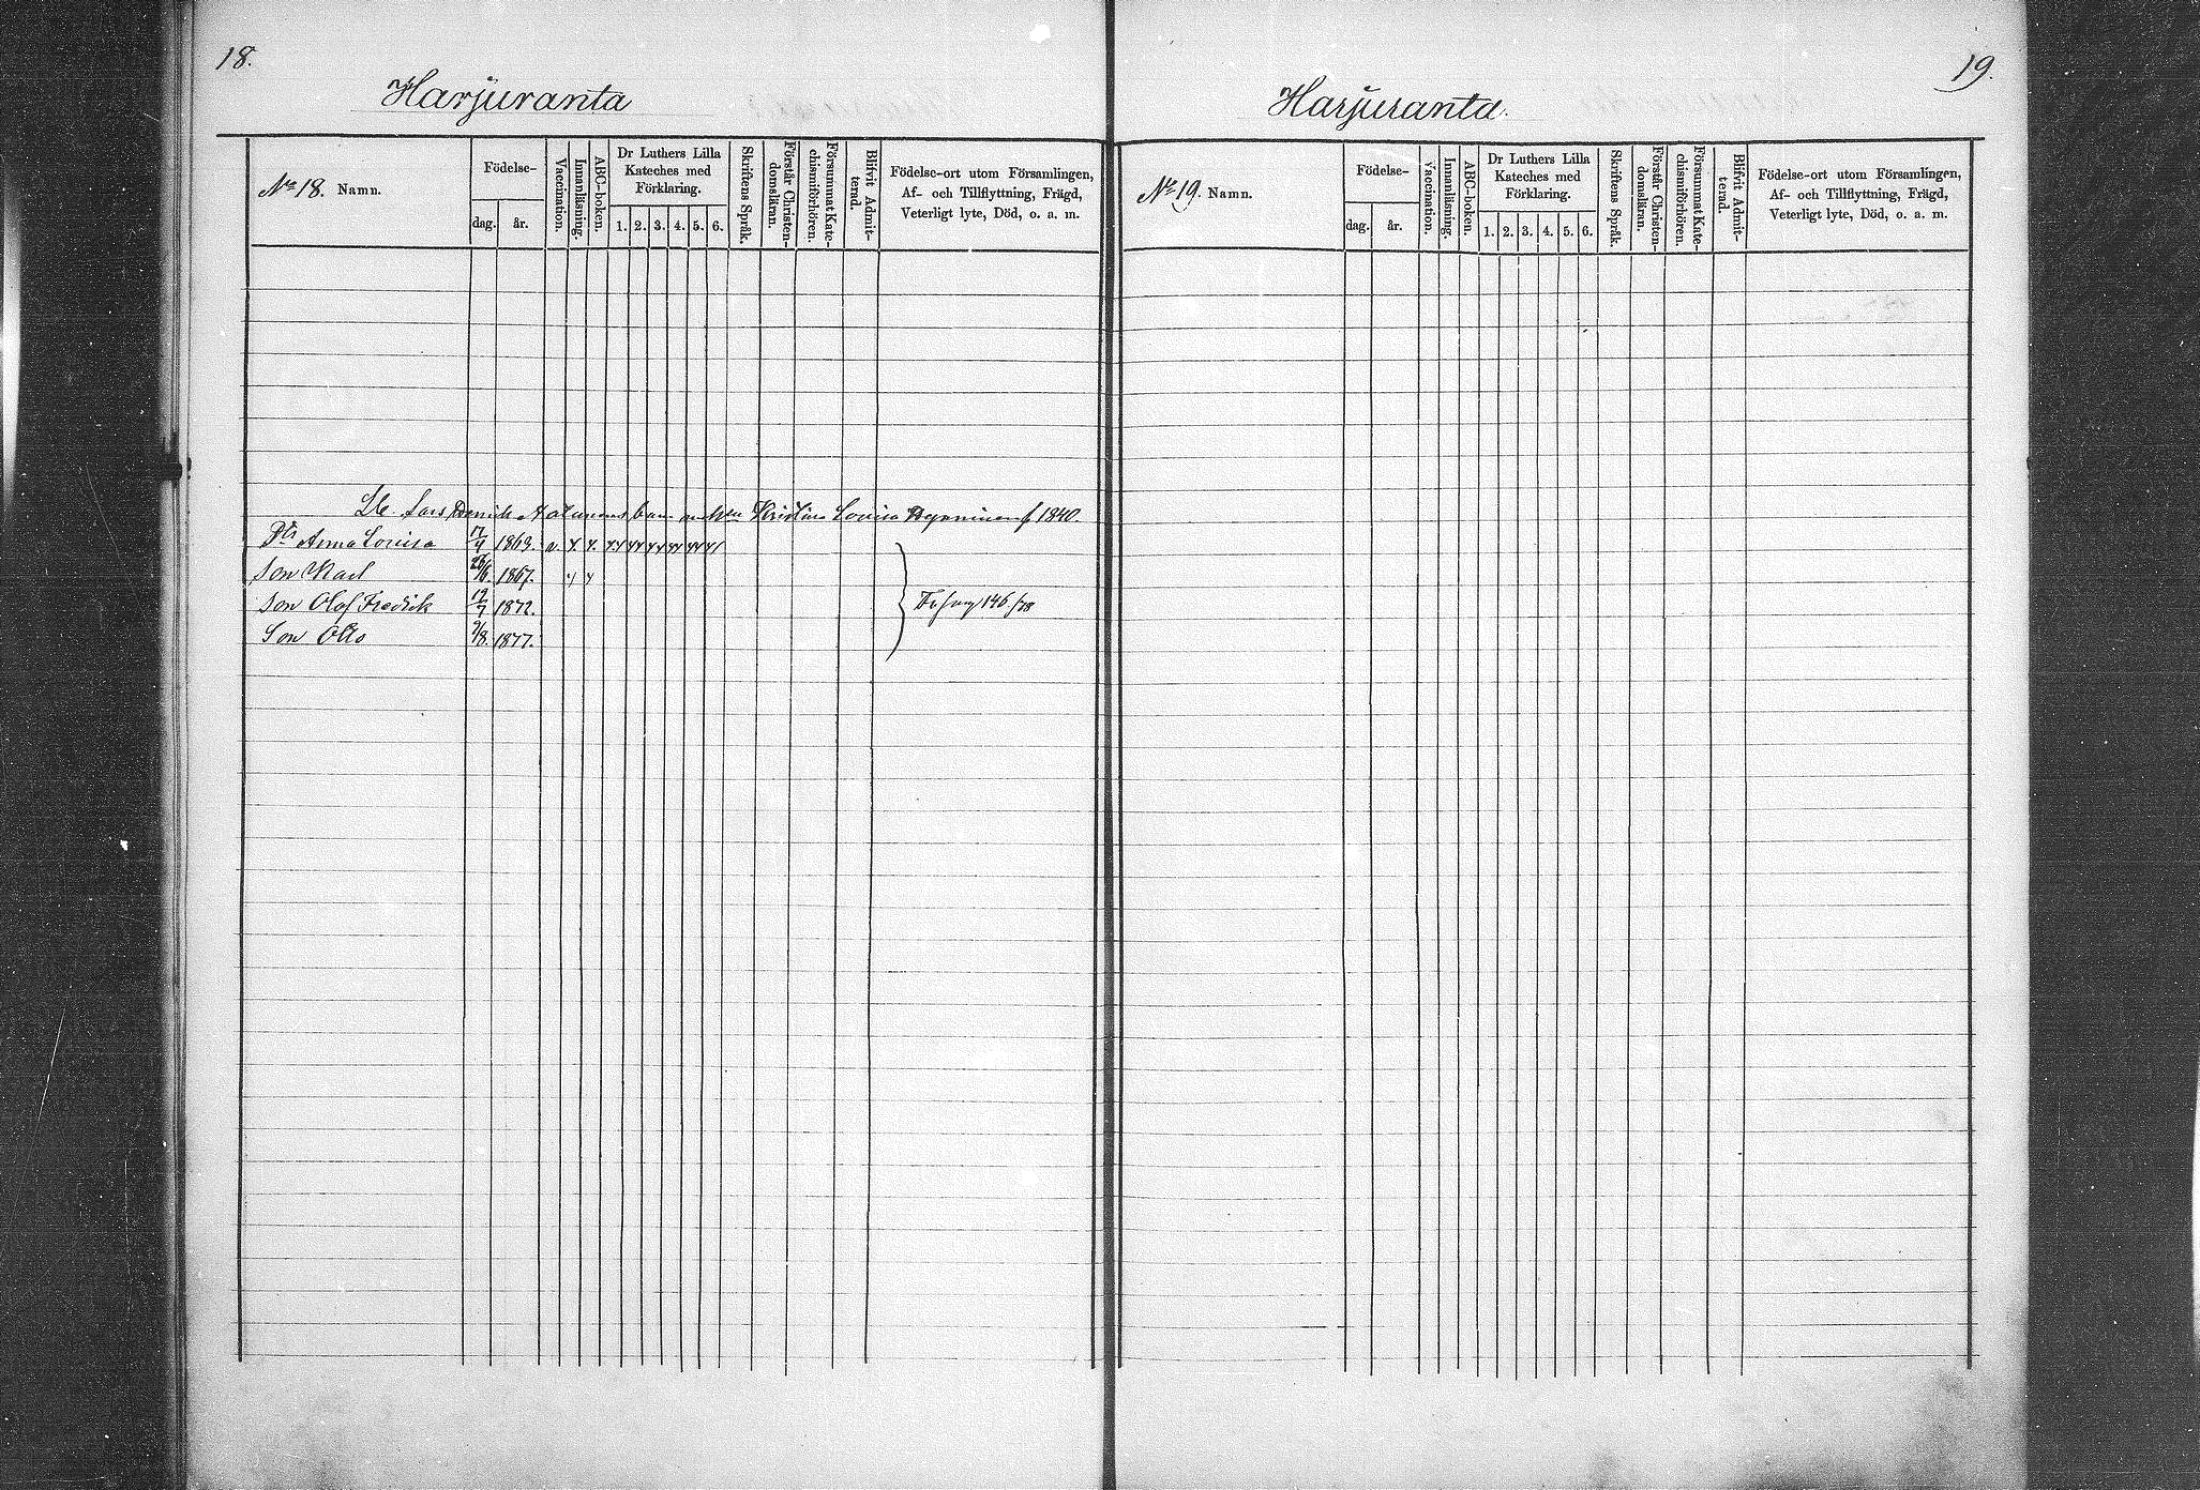 18.
Harjuranta
No 18. Namn.
Födelse-
dag. år.
Vaccination.
Innanläsning.
ABC-boken.
Dr Luthers Lilla
Kateches med
Förklaring.
1. 2. 3. 4. 5. 6.
Skriftens Språk.
Förstår Christen-
domsläran.
Försummat Kate-
chismiförhören.
Blifvit Admit-
terad.
Födelse-ort utom Församlingen,
Af- och Tillflyttning, Frägd,
Veterligt lyte, Död, o. a. m.
Lars barn Kristina Lovisa f 1840.
Anna Lovisa 1863. v. y. y. yy yy yy yy yy yy
Son Karl 1867. y y
Son Olof Fredrik 19/7 1872.
Son Otto 9/8. 1877.
146/78
19.
Harjuranta.
No 19. Namn.
Födelse-
dag. år.
Vaccination.
Innanläsning.
ABC-boken.
Dr Luthers Lilla
Kateches med
Förklaring.
1. 2. 3. 4. 5. 6.
Skriftens Språk.
Förstår Christen-
domsläran.
Försummat Kate-
chismiförhören.
Blifvit Admit-
terad.
Födelse-ort utom Församlingen,
Af- och Tillflyttning, Frägd,
Veterligt lyte, Död, o. a. m.